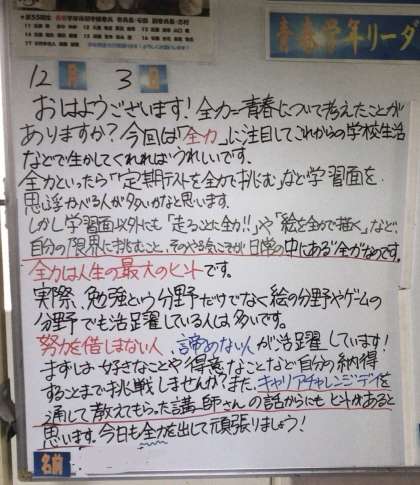 青春学年リーダ
12月 3日
おはようございます!全力=青春について考えたことが
ありますか?今回は「全力」に注目してこれからの学校生活
などで生かしてくれればうれしいです。
全力といったら「定期テストを全力で挑む」など学習面を
思い浮かべる人が多いかなと思います。
しかし学習面以外にも「走ることに全力!!」や「絵を全力で描く」など、
自分の「限界に挑むこと、そのやる気こそが日常の中にある"全力"なのです。
全力は人生の最大のヒントです。
実際、勉強という分野だけでなく絵の分野やゲームの
分野でも活躍している人は多いです。
努力を惜しまない人、諦めない人が活躍しています!
まずは好きなことや得意なことなど自分の納得
することまで挑戦しませんか?また、キャリアチャレンジデイを
通して教えてもらった講師さんの話からにもヒントがあると
思います。今日も全力を出して頑張りましょう!
名前